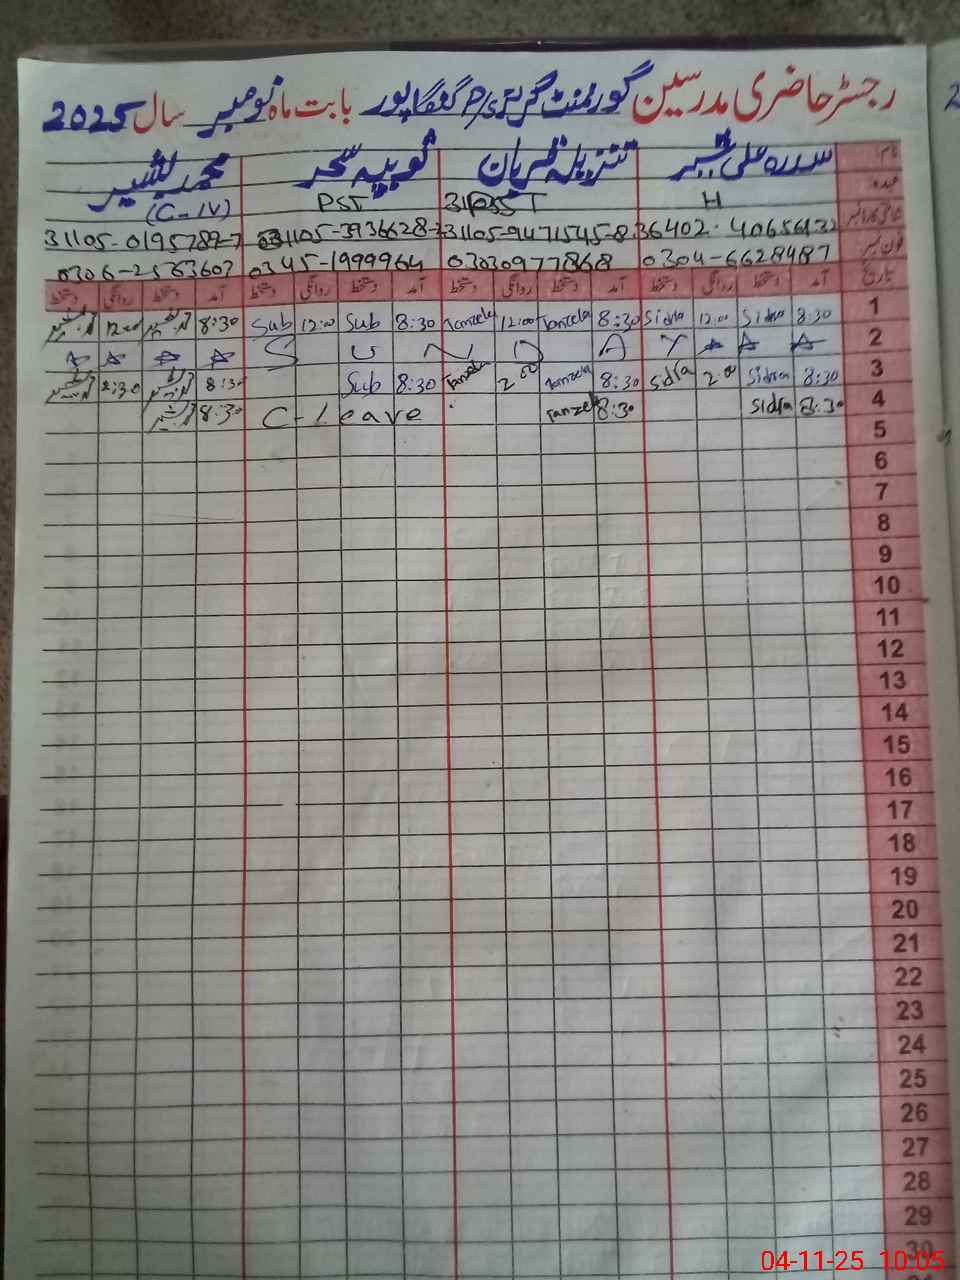 رجسٹر حاضری مدرسین گورنمنٹ گرلز P/S گنگا پور بابت ماہ نومبر سال 2025
نام سدرہ علی تنزیلہ قربان ثوبیہ سحر محمد بشیر
عہدہ H PST PST (C-IV)
شناختی کارڈ نمبر 31105-9471545-8 31105-0195789-7
فون نمبر 0304-6628487 03030977868 0345-1999964 0306-2563607
تاریخ آمد دستخط روانگی دستخط آمد دستخط روانگی دستخط آمد دستخط روانگی دستخط آمد دستخط روانگی دستخط
1 8:30 Sidra 12:00 Sidra 8:30 Tanzela 12:00 Tanzela 8:30 Sub 12:00 Sub 8:30 12:00
2 S U N D A Y
3 8:30 Sidra 2:00 Sidra 8:30 Tanzela 2:00 Tanzela 8:30 Sub 8:30 2:30
4 8:30 Sidra 8:30 Tanzela C-Leave 8:30
5
6
7
8
9
10
11
12
13
14
15
16
17
18
19
20
21
22
23
24
25
26
27
28
29
30
04-11-25 10:05